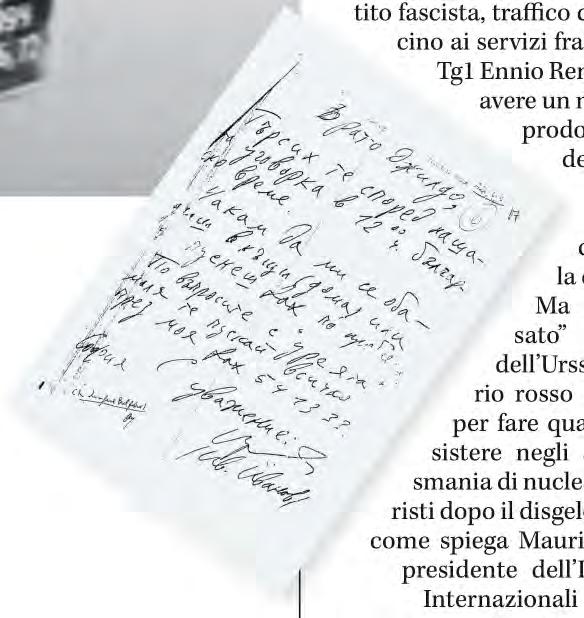 tito fascista, traffico d
cino ai servizi fra
Tg1 Ennio Rem
avere un n
prodo
de
d
la c
Ma
sato”
dell'Urss
rio rosso
per fare qua
sistere negli a
smania di nucle
risti dopo il disgelo
come spiega Mauri
presidente dell'I
Internazionali
Брато Джилдо,
17
Търсих те според наша-
та уговорка в 12 00 ч. българ
ско време.
Чакам да ми се оба-
диш вкъщи (дома) или
пуснеш факс по
По въпросите с уреята
те пускай всичко
през моя факс 54 13 33.
София
С уважение:
Ив. Иванов